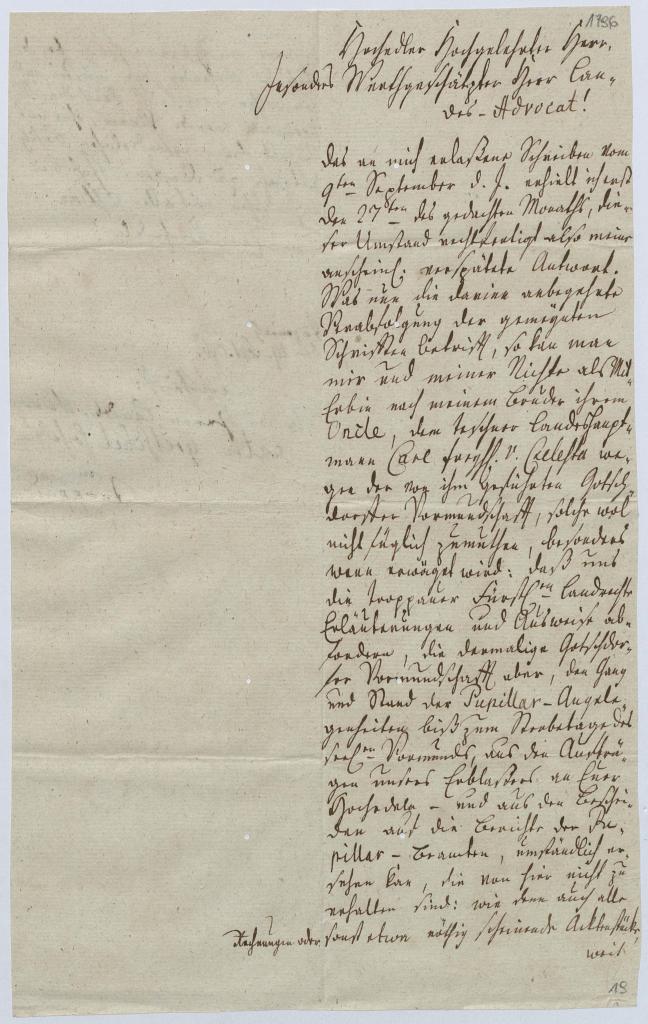 1796
Hochedler Hochgelehrter Herr,
Insonders Werthgeschätzter Herr Lan-
des-Advocat!
Das an mich erlaßene Schreiben vom
9ten September d. J. erhielt ich erst
den 27ten des gedachten Monaths, die-
ser Umstand rechtfertigt also meine
anscheinl: verspätete Antwort.
Was nun die darinn anbegehrte
Verabfolgung der gemeynten
Schrifften betrifft, so kan man
mir und meiner Nichte als Mit-
Erbin nach meinem Bruder ihrem
Oncle, dem teschner Landeshaupt-
mann Carl Freyh. v. Celesta we-
gen der von ihm geführten Gotsch-
dorffer Vormundschafft, solche wol
nicht füglich zumuthen, besonders
wenn erwäget wird: daß uns
die troppauer Fürstlen Landrechte
Erläuterungen und Ausweise ab-
fordern, die dermalige Gotschdor-
fer Vormundschafft aber, den Gang
und Stand der Pupillar-Angele-
genheiten biß zum Sterbetage des
seelen Vormunds, aus den Aufträ-
gen unsers Erblaßers an Euer
Hochedelg - und aus den Beschei-
den auf die Berichte der Pu-
pillar-Beamten, umständlich er-
sehen kan, die von hier nicht zu
erhalten sind: wie denn auch alle
Rechnungen oder sonst etwa nöthig scheinende Acktenstücke,
weit
19